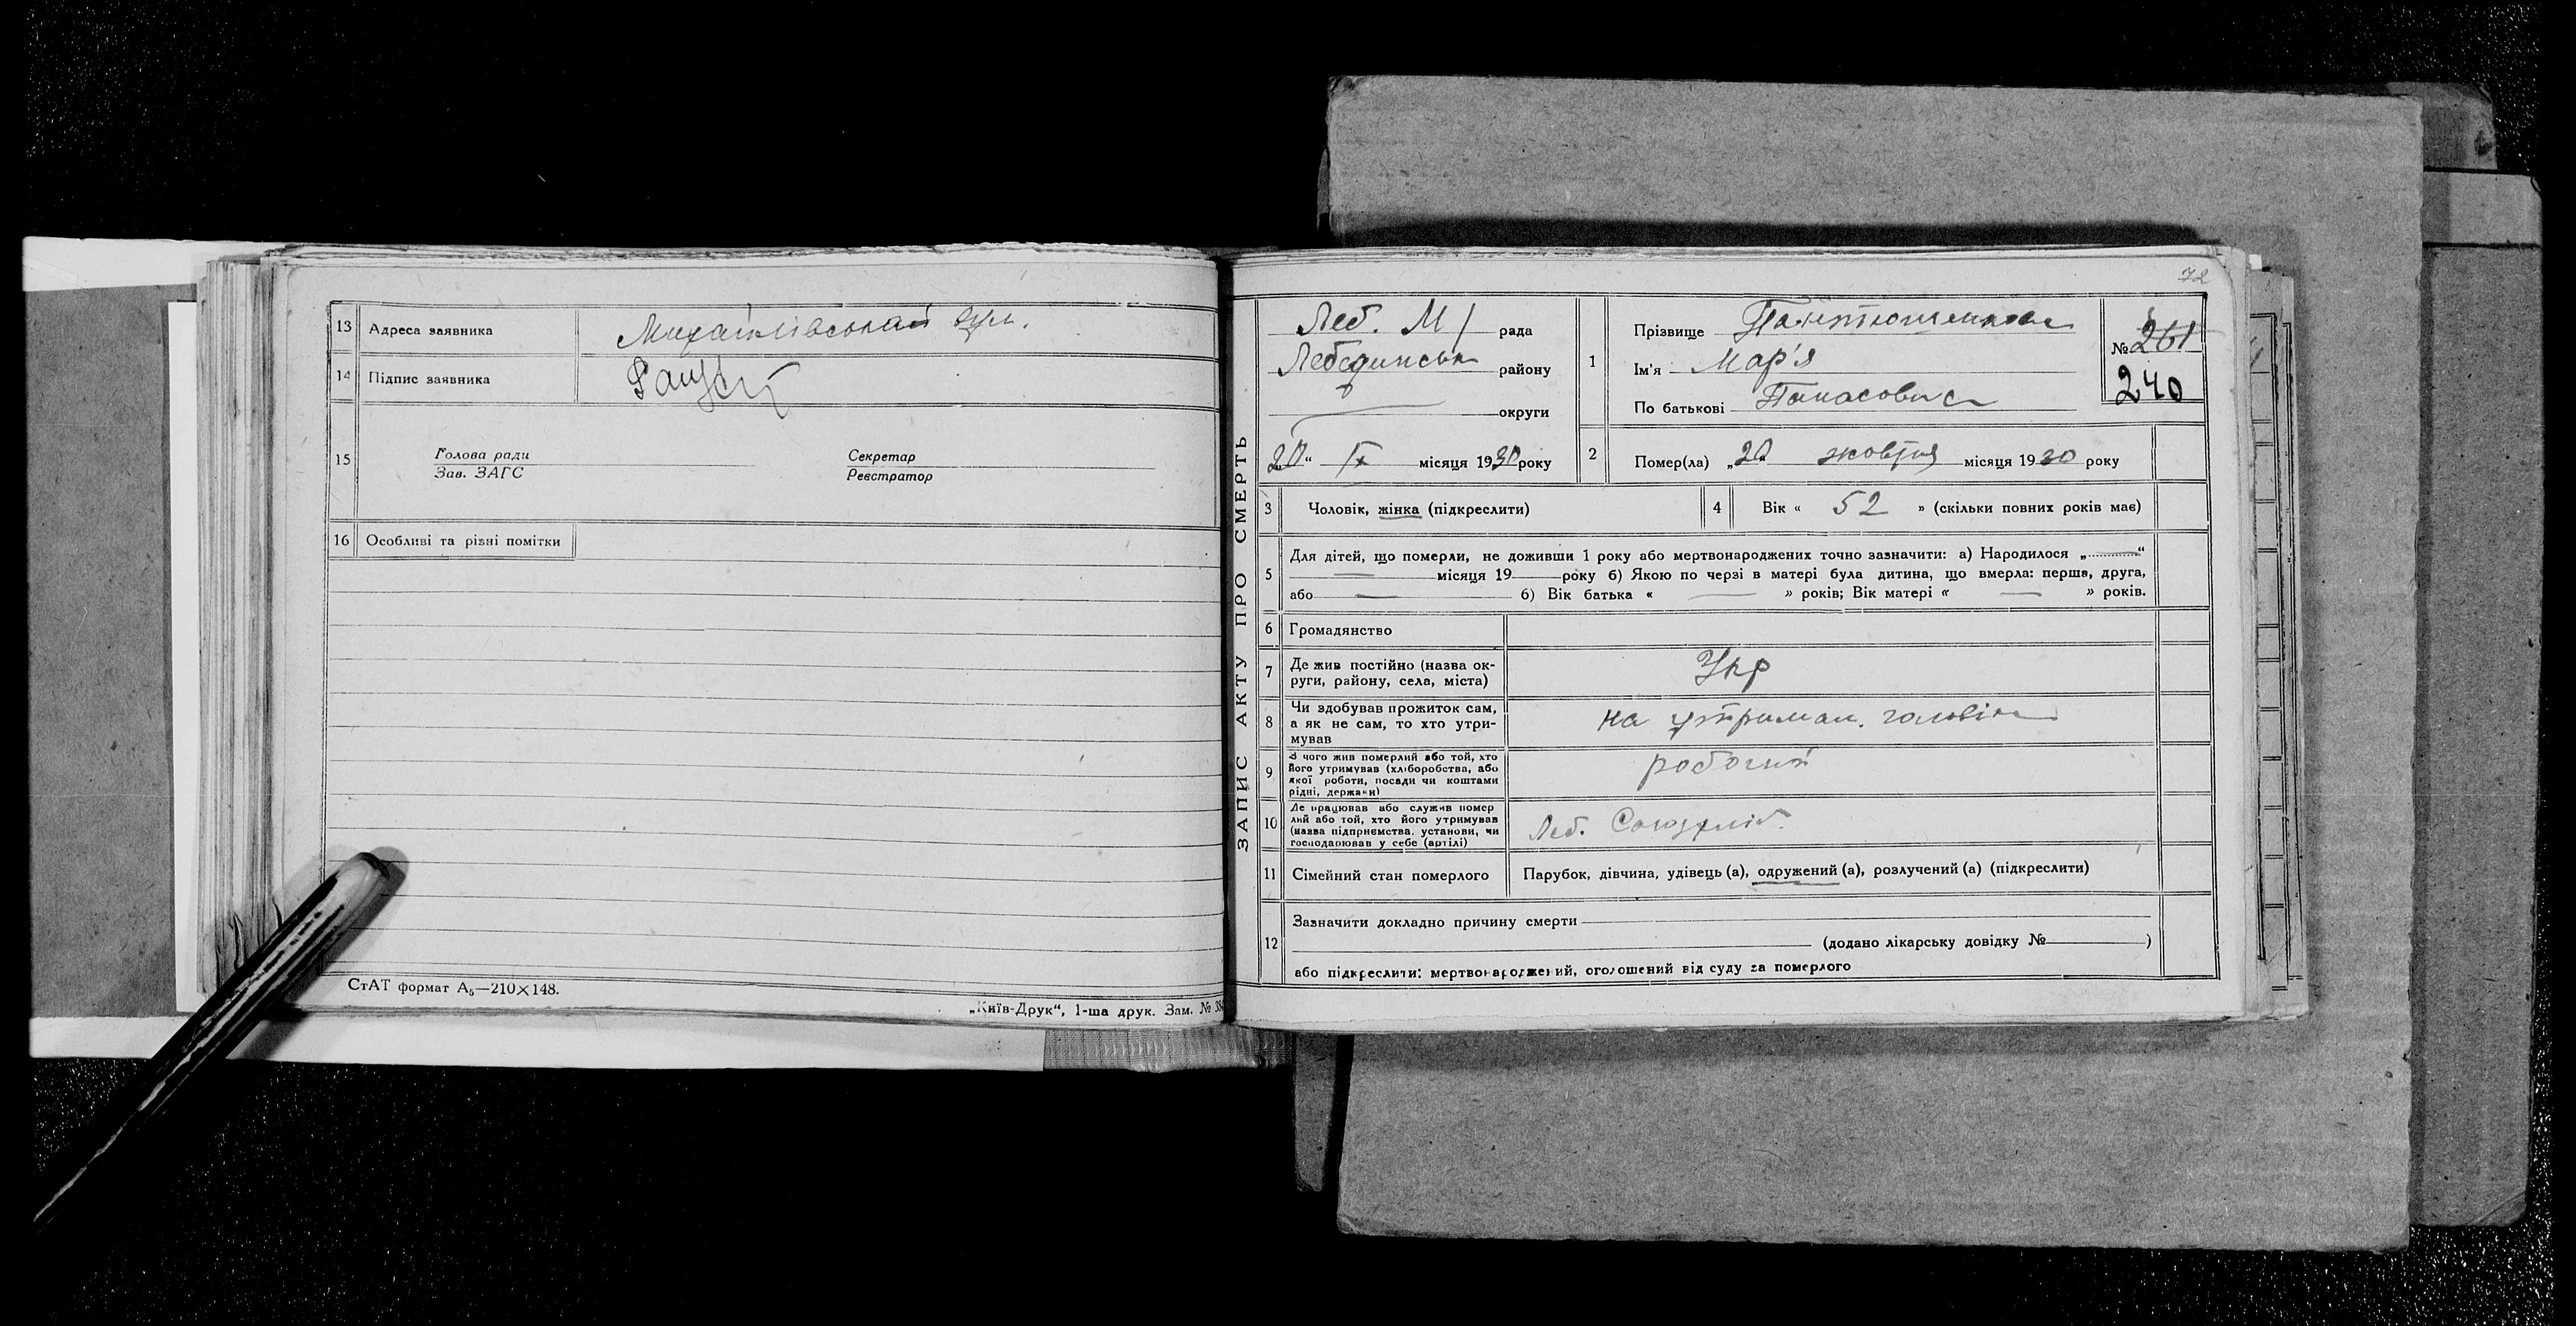 13 Адреса заявника Михайлівська вул.
14 Підпис заявника
15 Голова ради Секретар
Зав. ЗАГС Реєстратор
16 Особливі та різні помітки
СтАТ формат А5—210×148.
„Київ-Друк“, 1-ша друк. Зам. №
72
ЗАПИС АКТУ ПРО СМЕРТЬ
Леб. М/ рада
Лебединськ району
округи
„20“ IX місяця 1930 року
1 Прізвище
Ім'я Мар'я
По батькові Панасовна
№ 261
240
2 Помер(ла) „20“ жовтня місяця 1930 року
3 Чоловік, жінка (підкреслити)
4 Вік « 52 » (скільки повних років має)
5 Для дітей, що померли, не доживши 1 року або мертвонароджених точно зазначити: а) Народилося „—“
— місяця 19 року б) Якою по черзі в матері була дитина, що вмерла: перша, друга,
або — б) Вік батька « — » років; Вік матері « — » років.
6 Громадянство
7 Де жив постійно (назва ок-
руги, району, села, міста) Укр
8 Чи здобував прожиток сам,
а як не сам, то хто утри-
мував на утриман. чоловіка
9 З чого жив померлий або той, хто
його утримував (хліборобства, або
якої роботи, посади чи коштами
рідні, держави) робочий
10 Де працював або служив помер
лий або той, хто його утримував
(назва підприємства, установи, чи
господарював у себе (артілі) Леб. Союзхліб.
11 Сімейний стан померлого Парубок, дівчина, удівець (а), одружений (а), розлучений (а) (підкреслити)
12 Зазначити докладно причину смерти
(додано лікарську довідку № )
або підкреслити: мертвонароджений, оголошений від суду за померлого